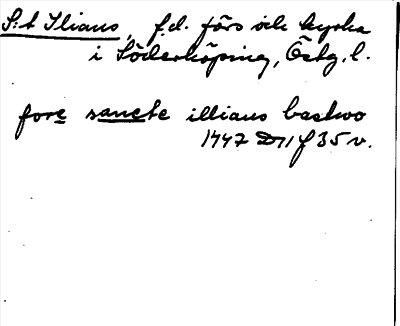 S:t Ilians, f.d. förs och kyrka
i Söderköping, Östg. l.
fore sancte illians bastwo
1447 D11 f 35 v.